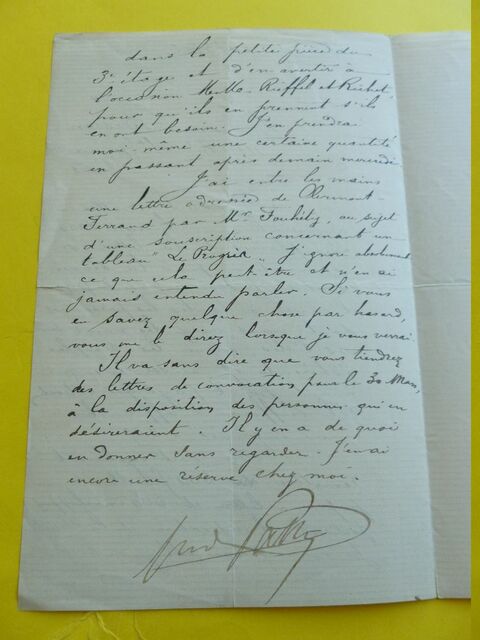 dans la petite pièce du
3e étage et d'en avertir à
l'occasion Mrs Rieffel et Richet,
pour qu'ils en prennent s'ils
en ont besoin. J'en prendrai
moi-même une certaine quantité
en passant après demain mercredi
J'ai entre les mains
une lettre adressée de Clermont-
Ferrand par Mr, au sujet
d'une souscription concernant un
tableau " Le ". J'ignore absolument
ce que cela peut être et n'en ai
jamais entendu parler. Si vous
en savez quelque chose par hasard,
vous me le direz lorsque je vous verrai
Il va sans dire que vous tiendrez
des lettres de convocation pour le 30 Mars,
à la disposition des personnes qui en
désireraient. Il y en a de quoi
en donner sans regarder. J'en ai
encore une réserve chez moi.